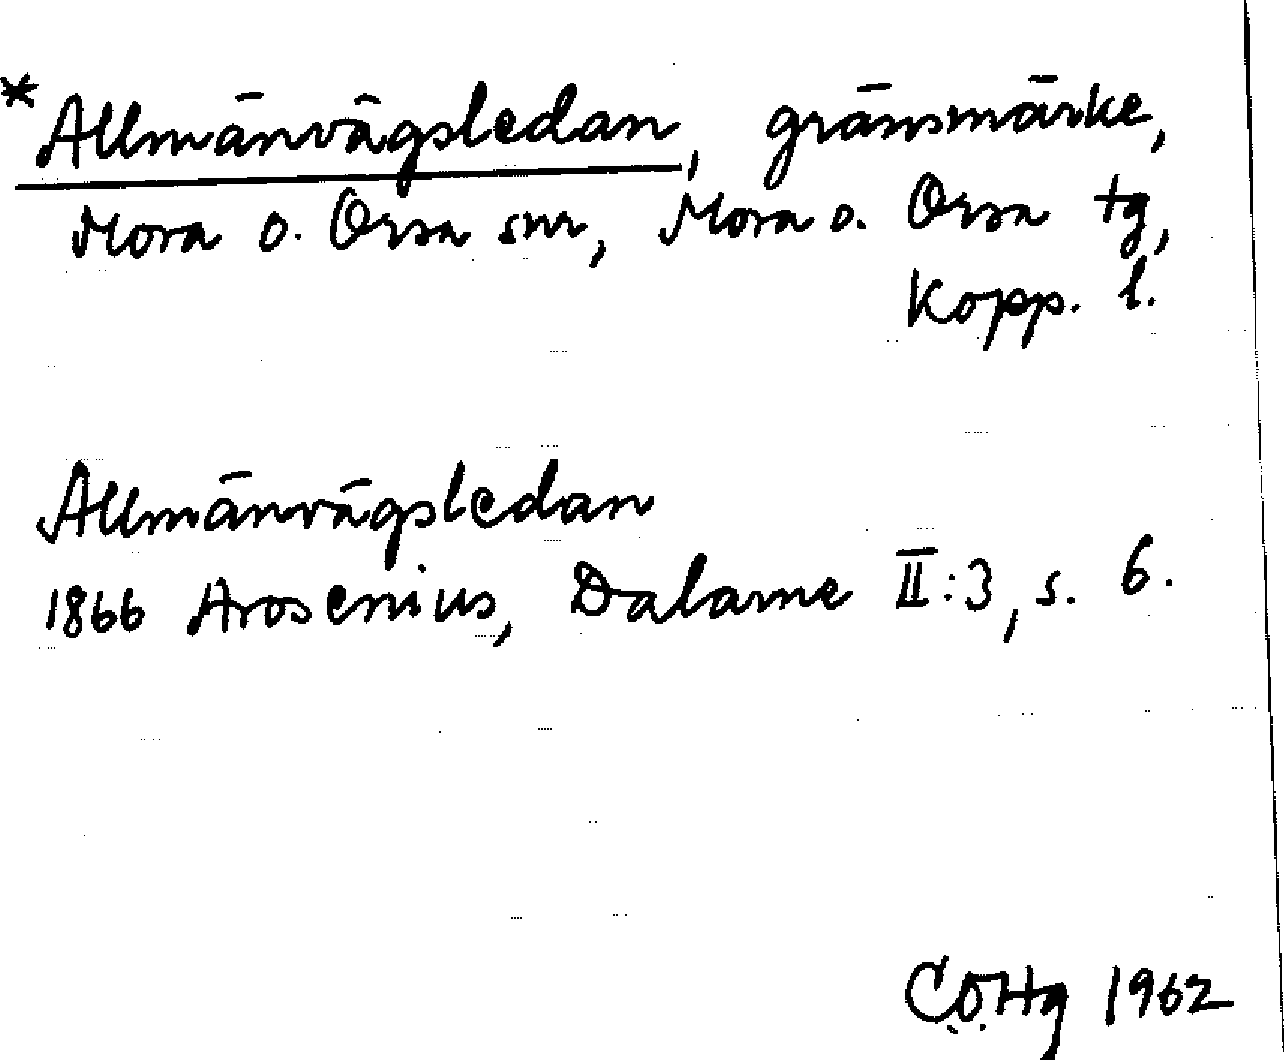 *Allmänvägsledan, gränsmärke,
Mora o. Orsa snr, Mora o. Orsa tg,
Kopp. l.
Allmänvägsledan
1866 Arosenius, Dalarne II:3, s. 6.
C.O.Hg 1962